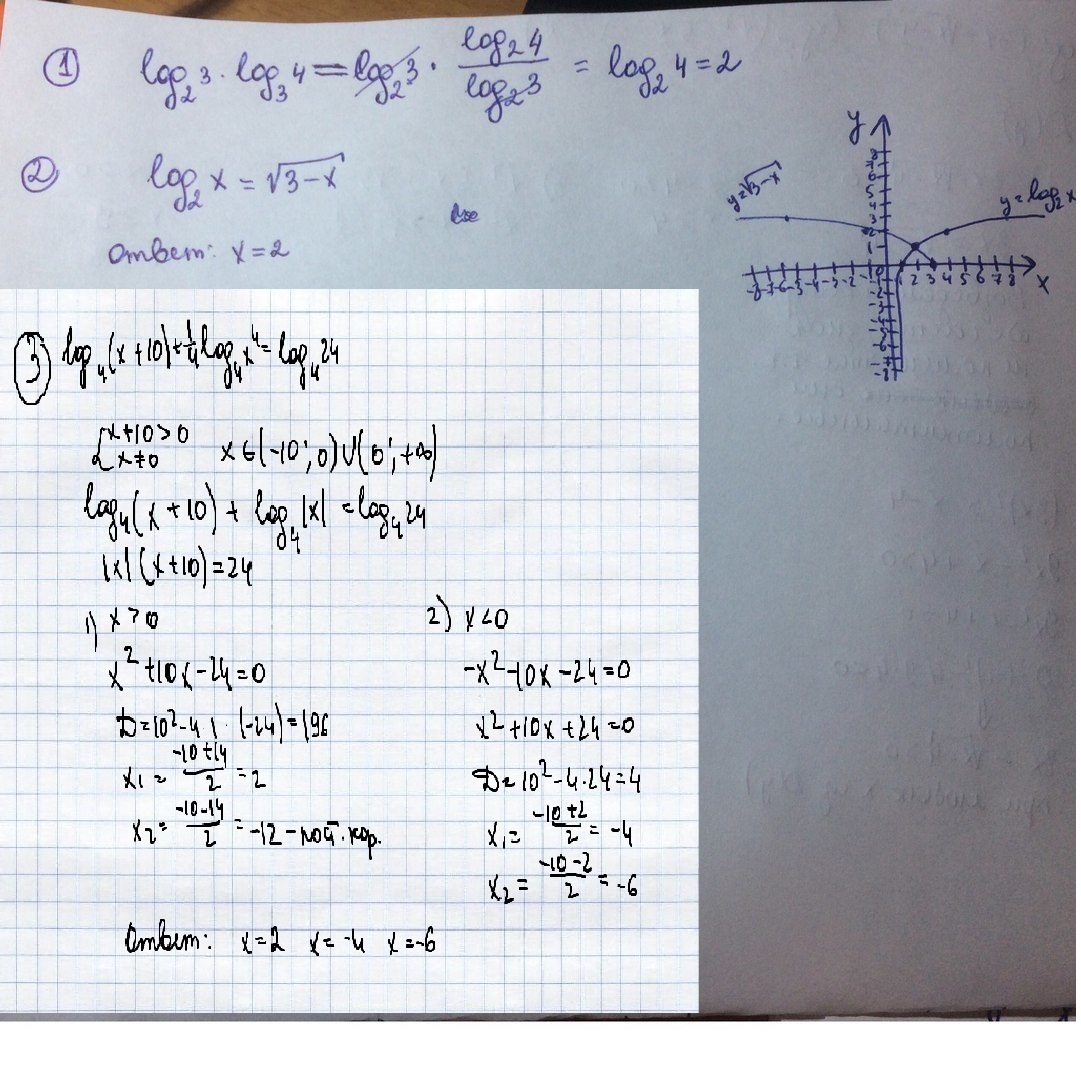 ① log₂3 · log₃4 = log₂3 · log₂4/log₂3 = log₂4 = 2
② log₂x = √3-x
Ответ: x=2
y
y=√3-x
y=log₂x
8
7
6
5
4
3
2
1
-8 -7 -6 -5 -4 -3 -2 -1 0 1 2 3 4 5 6 7 8 x
-1
-2
-3
-4
-5
-6
-7
-8
③ log₄(x+10)+¼log₄x⁴=log₄24
{x+10>0
x≠0 x∈(-10;0)∪(0;+∞)
log₄(x+10)+log₄|x|=log₄24
|x|(x+10)=24
1) x>0
x²+10x-24=0
D=10²-4·1·(-24)=196
x₁=(-10+14)/2=2
x₂=(-10-14)/2=-12-пост.кор.
2) x<0
-x²-10x-24=0
x²+10x+24=0
D=10²-4·24=4
x₁=(-10+2)/2=-4
x₂=(-10-2)/2=-6
Ответ: x=2 x=-4 x=-6